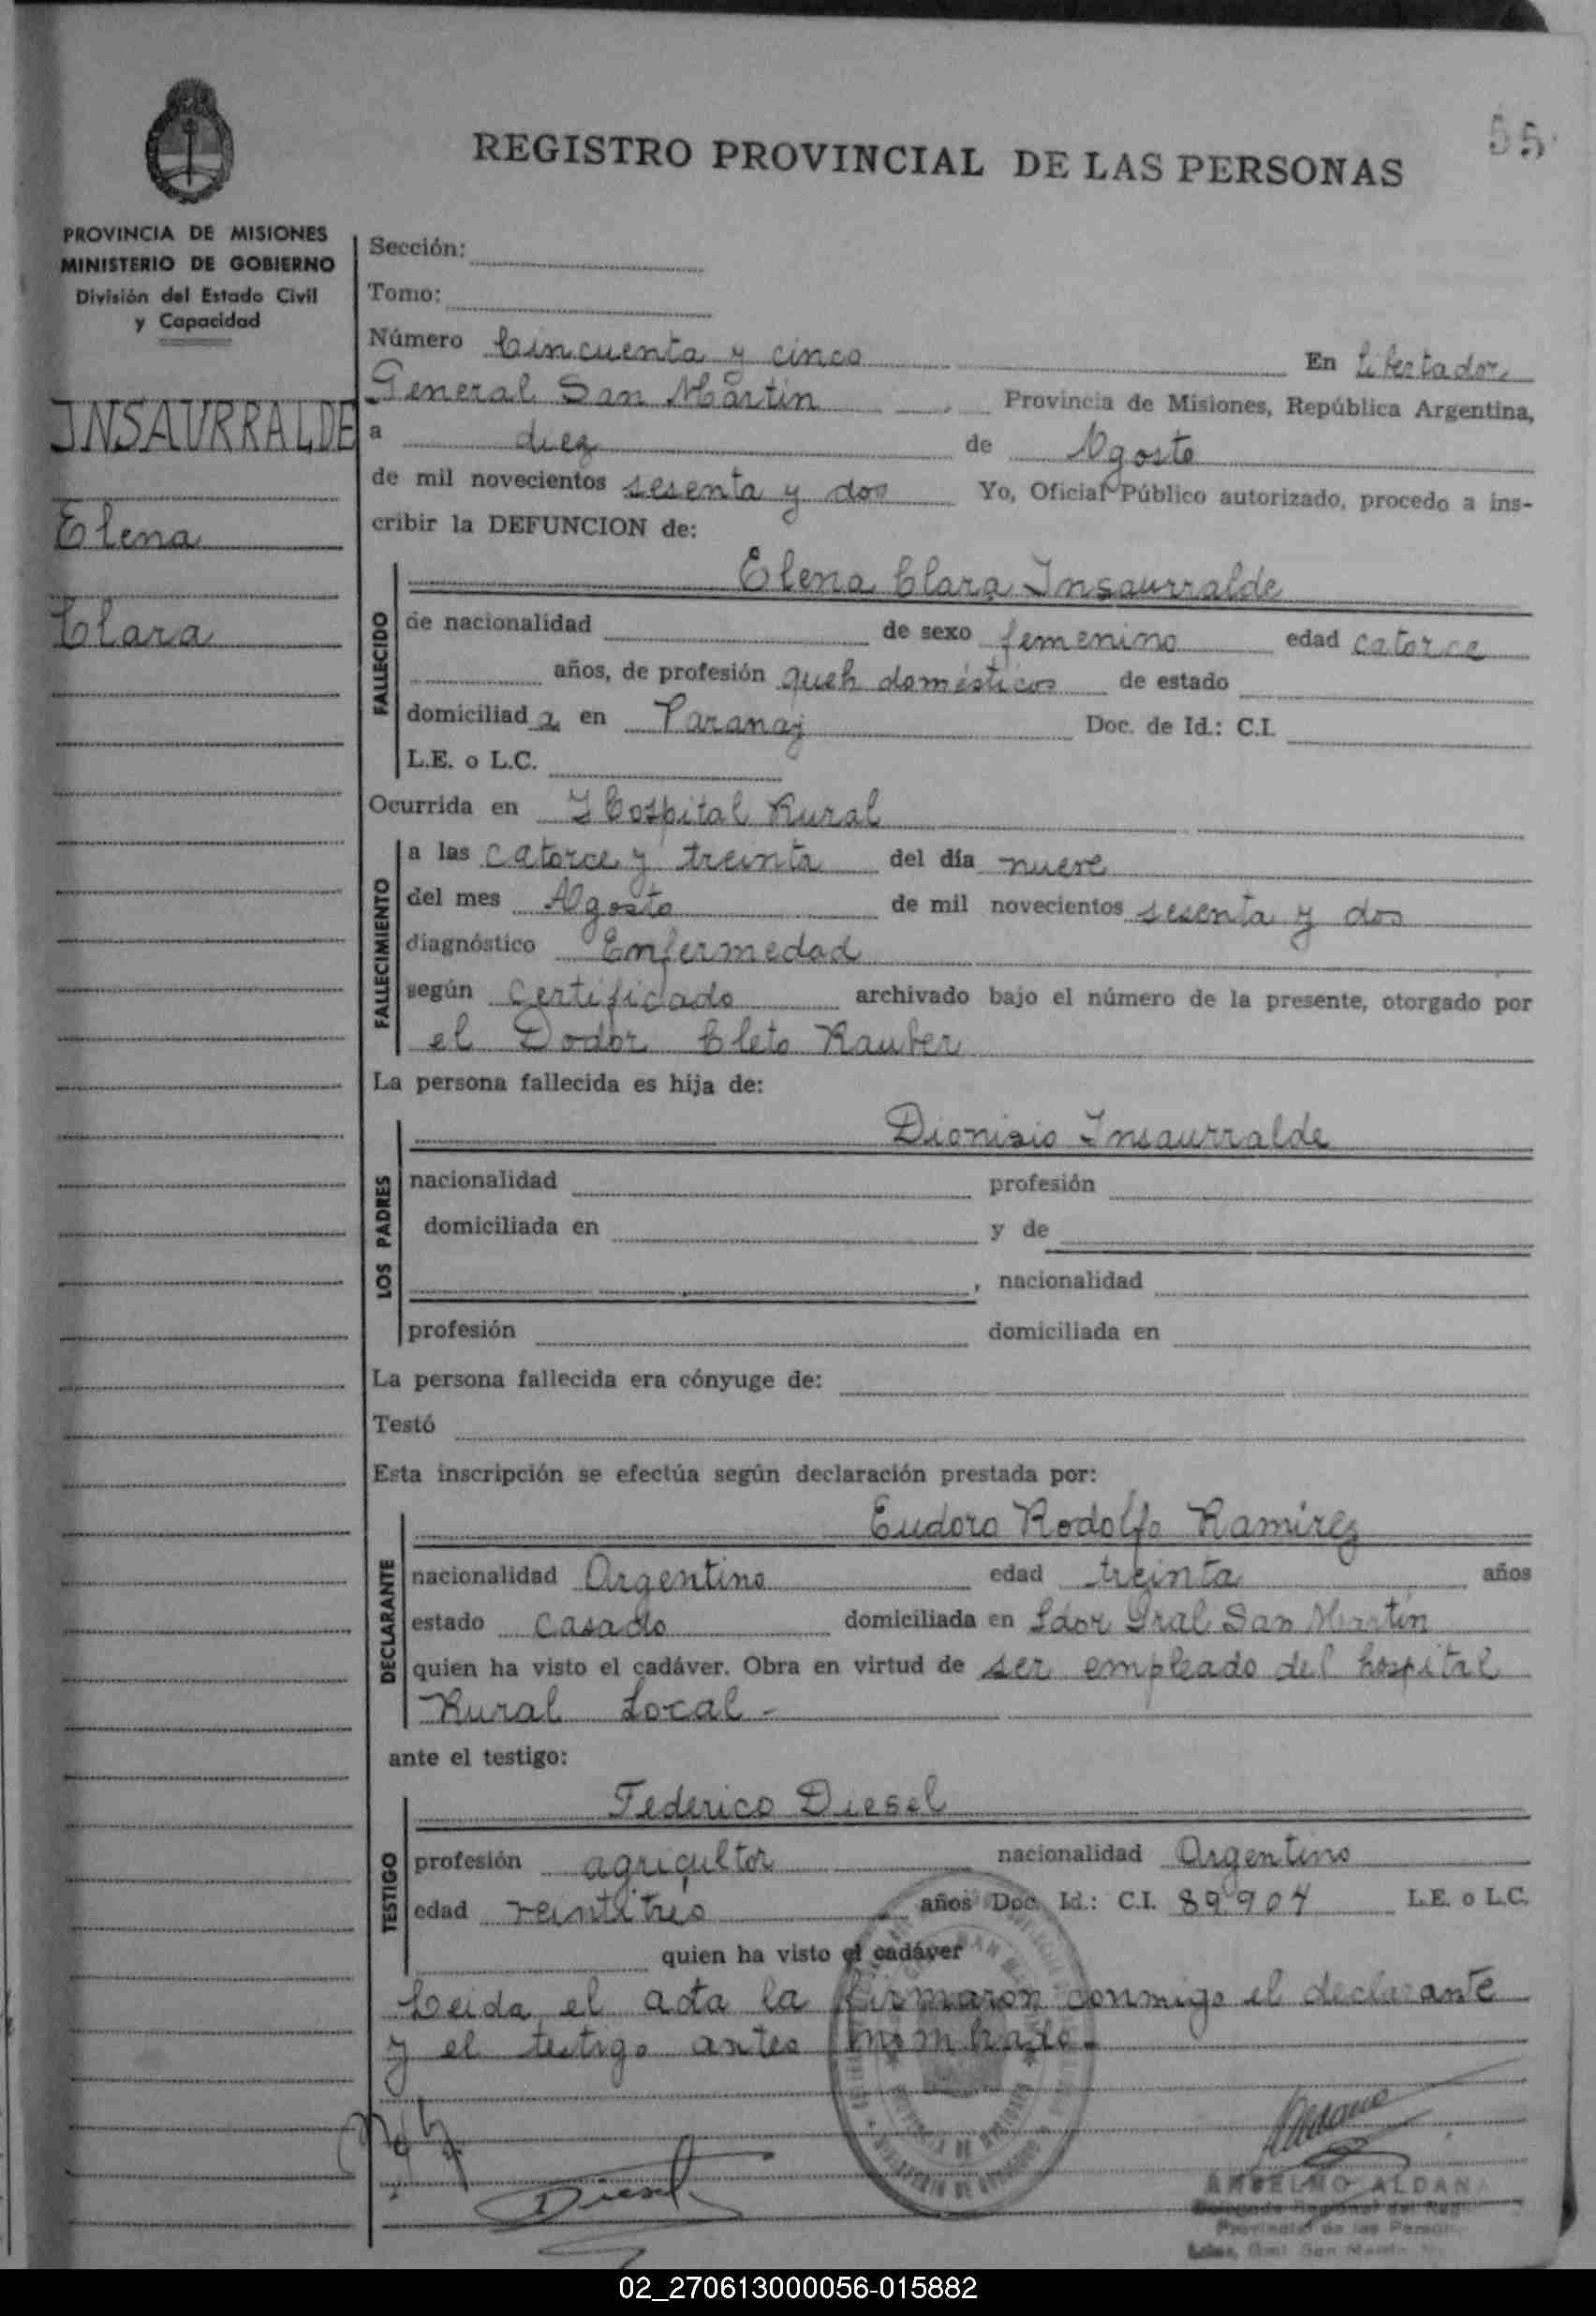 55
REGISTRO PROVINCIAL DE LAS PERSONAS
PROVINCIA DE MISIONES
MINISTERIO DE GOBIERNO
División del Estado Civil
y Capacidad
INSAURRALDE
Elena
Clara
Sección:
Tomo:
Número Cincuenta y cinco En Libertador
General San Martin Provincia de Misiones, República Argentina,
a diez de Agosto
de mil novecientos sesenta y dos Yo, Oficial Público autorizado, procedo a ins-
cribir la DEFUNCION de:
FALLECIDO
Elena Clara Insaurralde
de nacionalidad de sexo femenino edad catorce
años, de profesión queh domésticos de estado
domiciliad a en Paranay Doc. de Id.: C.I.
L.E. o L.C.
Ocurrida en Hospital Rural
FALLECIMIENTO
a las catorce y treinta del día nueve
del mes Agosto de mil novecientos sesenta y dos
diagnóstico Enfermedad
según Certificado archivado bajo el número de la presente, otorgado por
el Doctor Cleto Rauber
La persona fallecida es hija de:
LOS PADRES
Dionisio Insaurralde
nacionalidad profesión
domiciliada en y de
, nacionalidad
profesión domiciliada en
La persona fallecida era cónyuge de:
Testó
Esta inscripción se efectúa según declaración prestada por:
DECLARANTE
Eudoro Rodolfo Ramirez
nacionalidad Argentino edad treinta años
estado casado domiciliada en Ldor Gral San Martín
quien ha visto el cadáver. Obra en virtud de ser empleado del hospital
Rural Local -
ante el testigo:
TESTIGO
Federico Diesel
profesión agricultor nacionalidad Argentino
edad veintitrés años Doc. Id.: C.I. 89904 L.E. o L.C.
quien ha visto el cadáver
Leida el acta la firmaron conmigo el declarante
y el testigo antes nombrado.
Diesel
ANSELMO ALDANA
Delegado Regional del Reg
Provincial de las Person
Ldor. Gral San Martín
02_270613000056-015882